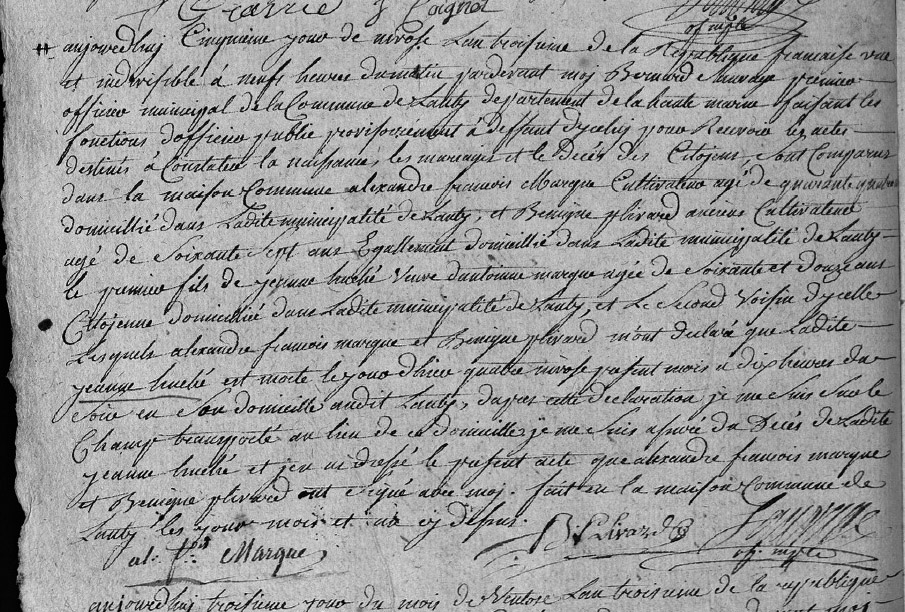 of. mple
aujourdhuj Cinquieme jour de nivose Lan troisieme de la Republique francaise une
et indivisible à neufs heures du matin pardevant moj Bernard Sauvage premier
officier municipal de la Commune de Lanty departement de la haute marne faisant les
fonctions d'officier public provisoirement à Deffaut d'yceluj pour Recevoir les actes
destinés à Constater la naissance, les mariages et le Décés des Citoyens, sont Comparus
dans la maison Commune alexandre francois Marque Cultivateur agé de quarante quatre
domicillié dans Ladite municipalité de Lanty, et Benigne plivard ancien Cultivateur
agé de Soixante Sept ans Egallement domicillié dans Ladite municipalité de Lanty
le premier fils de jeanne huché Veuve d'antoine marque agée de Soixante et douze ans
Citoyenne domicillié dans Ladite municipalité de Lanty, et Le Second Voisin d'ycelle
Lesquels alexandre francois marque et Benigne plivard m'ont declaré que Ladite
jeanne huché est morte le jour d'hier quatre nivose present mois à dix heures du
Soir en Son domicille audit Lanty, dapres cette declaration je me suis sur le
Champ transporté au lieu de ce domicille, je me suis assuré du Décés de Ladite
jeanne huché et j'en ai dressé le present acte que alexandre francois marque
et Benigne plivard ont signé avec moj. fait en la maison Commune de
Lanty les jour mois et an cy dessus.
al. f.ois Marque B. Plivard Sauvage
of. mple
aujourdhuj troisieme jour du mois de Ventose Lan troisieme de la republique